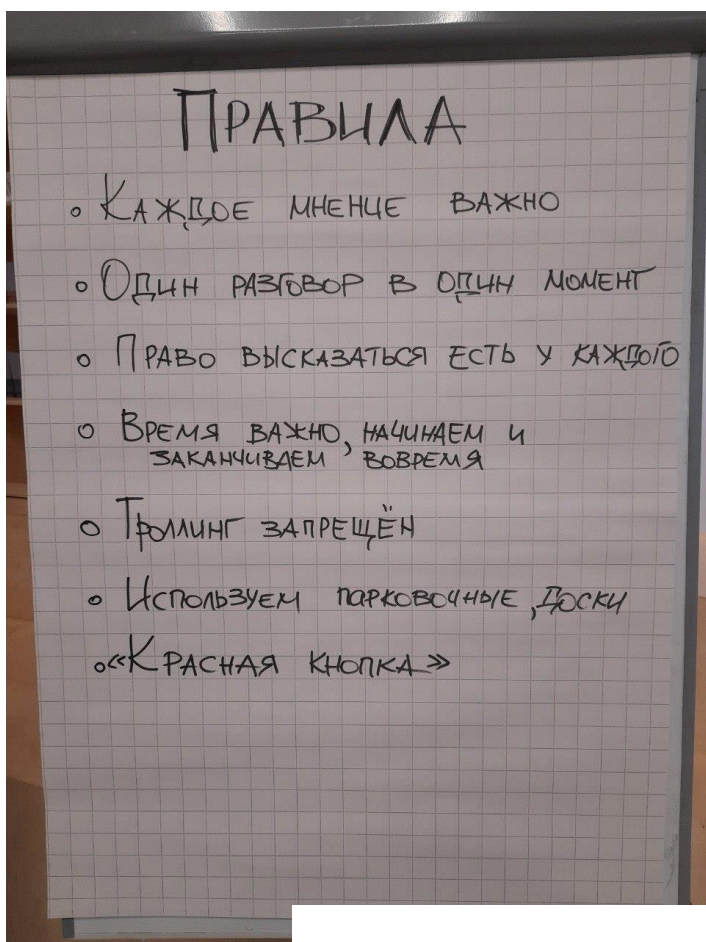 ПРАВИЛА
◦ КАЖДОЕ МНЕНИЕ ВАЖНО
◦ ОДИН РАЗГОВОР В ОДИН МОМЕНТ
◦ ПРАВО ВЫСКАЗАТЬСЯ ЕСТЬ У КАЖДОГО
◦ ВРЕМЯ ВАЖНО, НАЧИНАЕМ И
ЗАКАНЧИВАЕМ ВОВРЕМЯ
◦ ТРОЛЛИНГ ЗАПРЕЩЁН
◦ ИСПОЛЬЗУЕМ ПАРКОВОЧНЫЕ ДОСКИ
◦ «КРАСНАЯ КНОПКА»